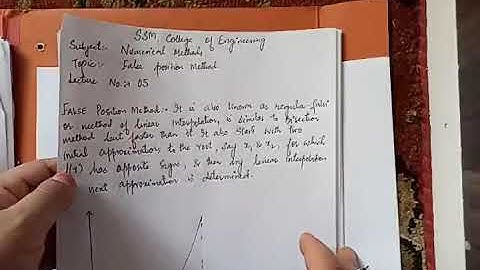 SSM College of Engineering
Subject:- Numerical Methods
Topic:- False position Method
Lecture No:- 05
FALSE Position Method:- It is also known as regula-falsi
or method of linear interpolation, is similar to bisection
method but faster than it. It also start with two
initial approximations to the root, say x₁ & x₂, for which
f(x) has opposite signs, & then by linear interpolation
next approximation is determined.